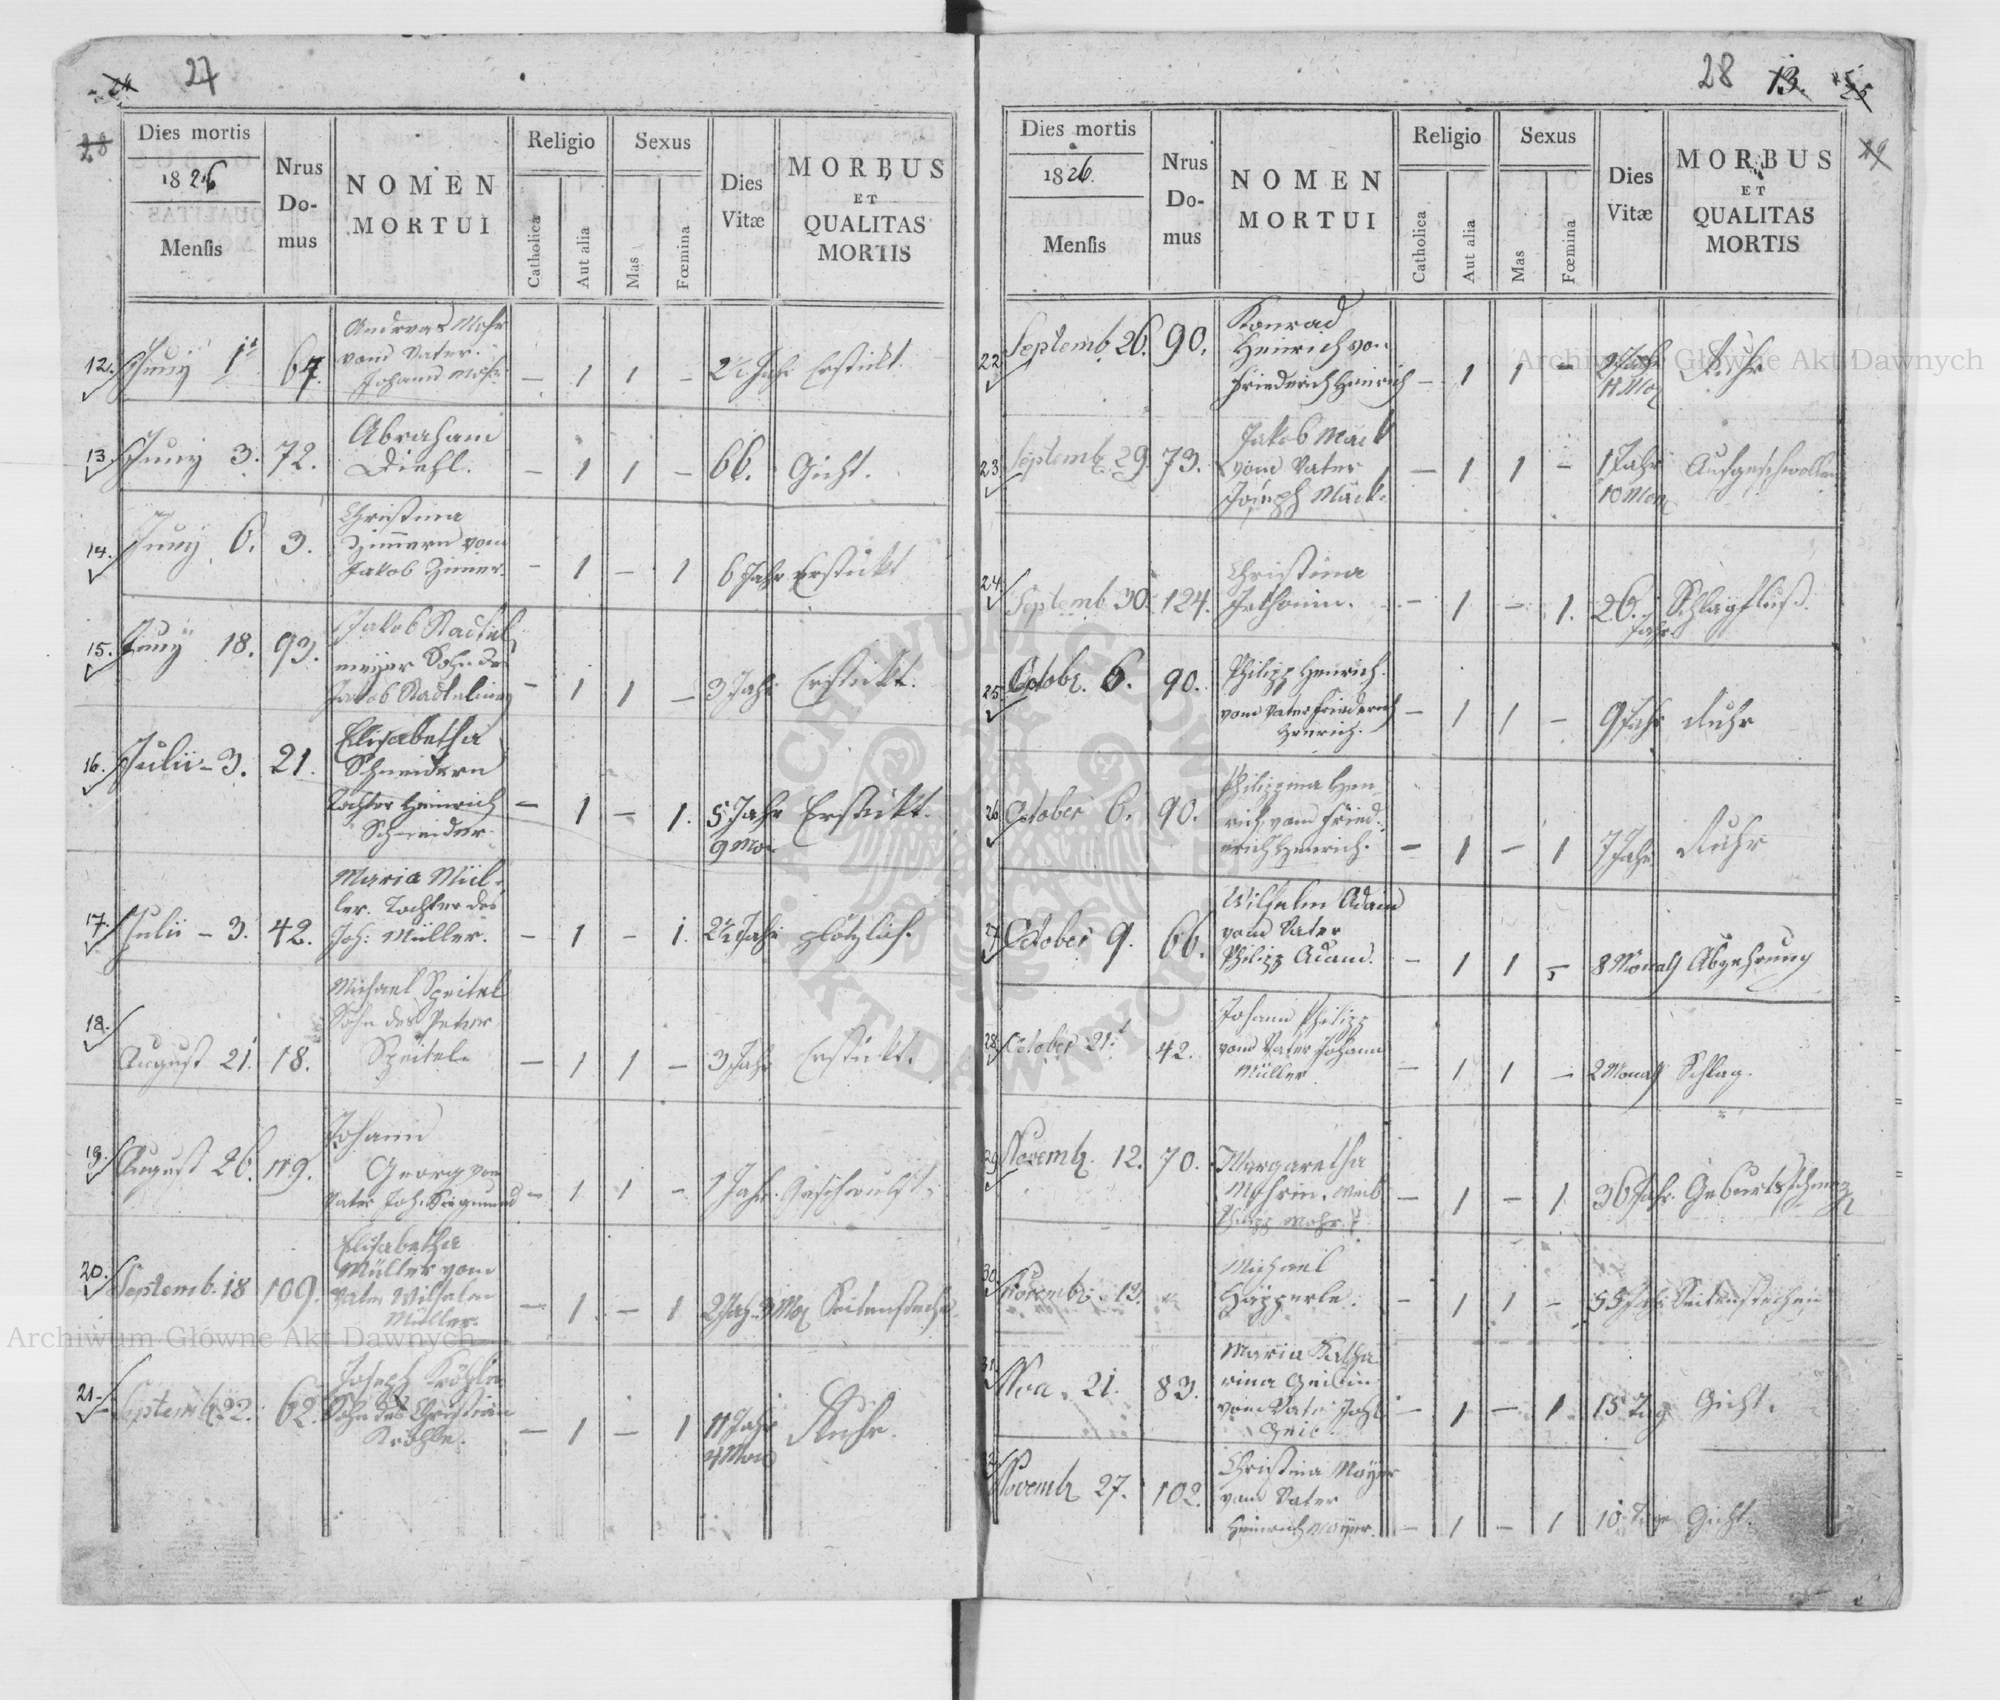 27
28
Dies mortis
1826
Mensis
Nrus Domus
NOMEN MORTUI
Religio
Catholica
Aut alia
Sexus
Mas
Fœmina
Dies Vitæ
MORBUS
ET
QUALITAS
MORTIS
12. Juny 1t 67. Andreas Mohr
vom Vater
Johann Mohr - 1 1 - 2½ Jahr Erstickt.
13. Juny 3. 72. Abraham
Diehl. - 1 1 - 66. Gicht.
14. Juny 6. 3. Christina
Zimmern vom
Jakob Zimer. - 1 - 1 6 Jahr Erstickt
15. Juny 18. 93. Jakob
Sohn des
Jakob - 1 1 - 3 Jahr Erstickt.
16. Julii - 3. 21. Elisabetha
Schneidern
Tochter Heinrich
Schneider. - 1 - 1. 5 Jahr Erstickt.
9 Mo
17. Julii - 3. 42. Maria Mül-
ler. Tochter des
Joh: Müller. - 1 - 1. 2½ Jahr plötzlich.
18. August 21. 18. Michael Speitel
Sohn des Peter
Speitel - 1 1 - 3 Jahr Erstickt.
19. August 26. 119. Johann
Georg vom
Vater Joh. Siegmund - 1 1 - 1 Jahr. Geschwulst.
20. Septemb. 18 109. Elisabetha
Müller vom
Vater Wilhelm
Müller. - 1 - 1 2 Jah. 3 Mo Seitenstechen
21. Septemb 22. 62. Joseph
Sohn des Christian
- 1 - 1 11 Jahr Ruhr.
4 Mon
28 13.
Dies mortis
1826.
Mensis
Nrus Domus
NOMEN MORTUI
Religio
Catholica
Aut alia
Sexus
Mas
Fœmina
Dies Vitæ
MORBUS
ET
QUALITAS
MORTIS
22. Septemb. 26. 90. Konrad
Heinrich von
Friederich Heinrich - 1 1 - Jahr Ruhr
11 Mo
23. Septemb. 29. 73. Jakob Mäck
vom Vater
Joseph Mäck. - 1 1 - 1 Jahr Aufgeschwollen
10 Mon
24. Septemb. 30. 124. Christina
- 1 - 1. 26. Schlagfluß.
Jahr
25. Octobr. 6. 90. Philipp Henrich.
vom Vater Friederich
Henrich. - 1 1 - 9 Jahr Ruhr
26. October 6. 90. Philippina Hen
rich, vom Fried
erich Henrich. - 1 - 1 7 Jahr Ruhr
27. October 9. 66. Wilhelm Adam
vom Vater
Philipp Adam. - 1 1 - 8 Monath Abzehrung
28. October 21t 42. Johann Philipp
vom Vater Johann
Müller - 1 1 - 2 Monath Schlag.
29. Novemb. 12. 70. Margaretha
Mohrin. Weib
Philipp Mohr. - 1 - 1 36 Jahr. Geburtsschmerz
30. Novembr. 13. Michael
Häpperle. - 1 1 - 55 Jahr Seitenstechen
31. Nov. 21. 83. Maria Katha
rina Geibin
vom Vater Joh.
Geib. - 1 - 1 15 Tag Gicht.
Novemb 27. 102. Christina Mayer
vom Vater
Heinrich Mayer. - 1 - 1 10 Tage Gicht.
Archiwum Główne Akt Dawnych
Archiwum Główne Akt Dawnych
ARCHIWUM GŁÓWNE AKT DAWNYCH